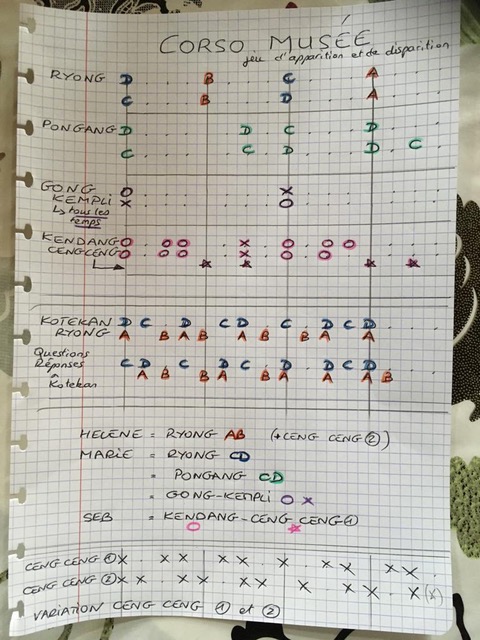 CORSO MUSÉE
jeu d'apparition et de disparition
RYONG D . . . B . . . C . . . A . . .
C . . . B . . . D . . . A . . .
PONGANG D . . . . . D . C . . . D . . .
C . . . . . C . D . . . D . C .
GONG O . . . . . . . X . . . . . . .
KEMPLI X . . . . . . . O . . . . . . .
↳ tous les
temps
KENDANG O . O O . . X . O . O O . . .
CENGCENG O . O O . . X . O . O . . . .
KOTEKAN D C . D . C D . C . D C D . . .
RYONG A . B A B . A B . B A . A . . .
Questions C D . C . D C . D . D C D . . .
Réponses A B . B A . B A . A . A B
Kotekan
HELENE = RYONG AB (+ CENG CENG ②)
MARIE = RYONG CD
= PONGANG CD
= GONG-KEMPLI O X
SEB = KENDANG-CENG CENG ①
CENG CENG ① X . X X . X X . X . X X . X X .
CENG CENG ② X X . X X . X X . X . X X . X (X)
VARIATION CENG CENG ① et ②